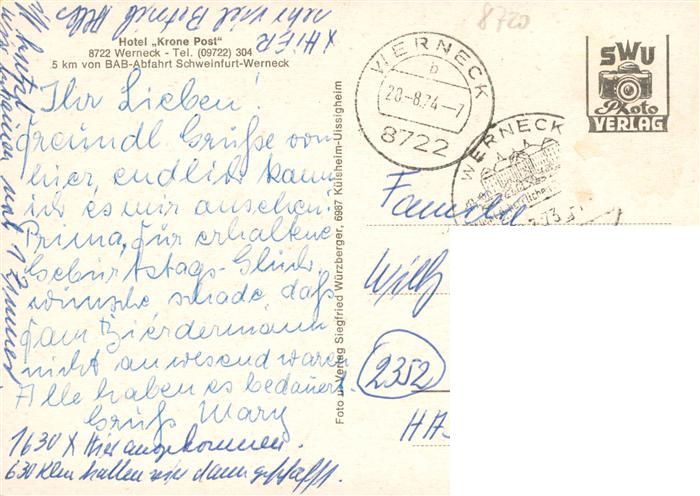 Hotel „Krone Post"
8722 Werneck - Tel. (09722) 304
5 km von BAB-Abfahrt Schweinfurt-Werneck
Ihr Lieben!
Freundl. Grüße von
hier, endlich kann
ich es mir anschen.
Prima, für erhaltene
Geburtstags-Glück-
wünsche schade, daß
Fam Bierdermann
nicht anwesend waren
Alle haben es bedauert.
Gruß Mary
1630 X Hier angekommen.
630 Klm hatten wir dann geschafft.
X HIER
sehr viel Betrieb
und 1 Zimmer
Foto u. Verlag Siegfried Würzberger, 6987 Külsheim-Uissigheim
8720
WERNECK
b
20.-8.74.-7
8722
WERNECK
73
SWU
Photo
VERLAG
Familie
Willy
2352
HA